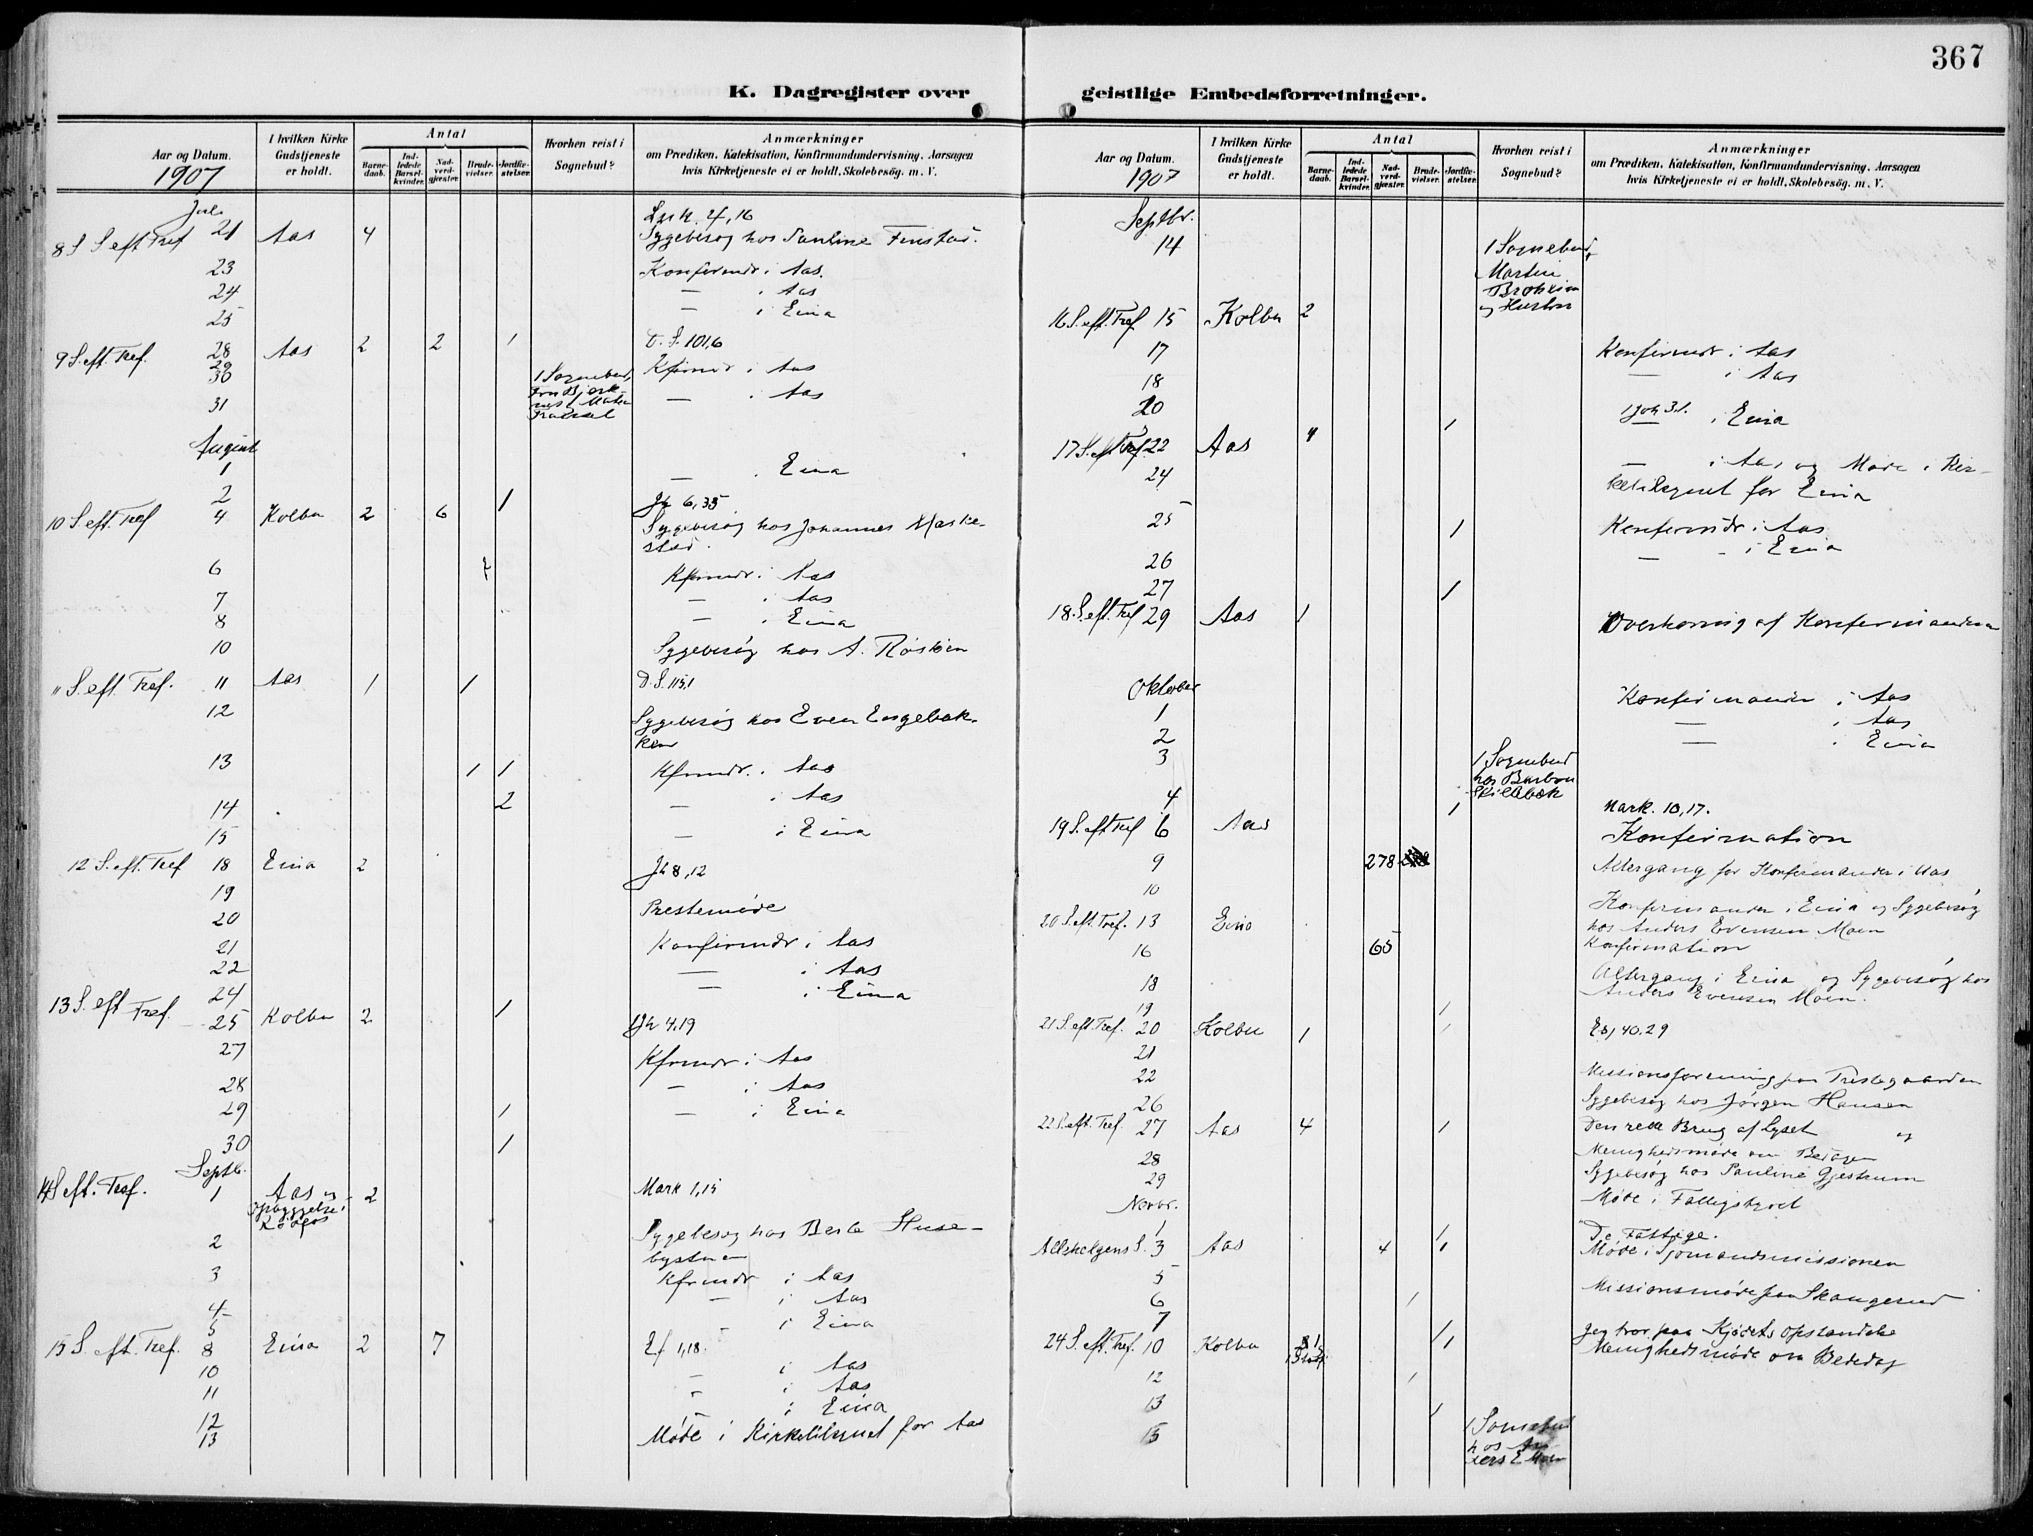 367
K. Dagregister over geistlige Embedsforretninger.
Aar og Datum. 1907
I hvilken Kirke Gudstjeneste er holdt.
Antal
Barnedaab.
Indledede Barselkvinder.
Nadverdgjæster.
Brudevielser.
Jordfæstelser.
Hvorhen reist i Sognebud?
Anmærkninger
om Prædiken, Katekisation, Konfirmandundervisning, Aarsagen
hvis Kirketjeneste ei er holdt, Skolebesøg. m. V.
Juli
8 S eft Tref 21 Aas 4 4, 16
Sygebesøg hos Pauline Finstad.
23 Konfirmdr i Aas.
24 — i Aas
25 — i Eina
9 S. eft. Tref. 28 Aas 2 2 1 D. S. 101,6
29
30 1 Sognebud, Kfirmdr i Aas
31 — Aas
August
1 — Eina
2 1
10 S eft Tref 4 Kolbu 2 6 Jh 6,35
Sygebesøg hos Johannes Maskestad.
6 2 Kfirmdr i Aas
7 — i Aas
8 — i Eina
10 Sygebesøg hos A. Røisien
11 S. eft. Tref. 11 Aas 1 1 D. S. 115,1
12 Sygebesøg hos Even Engebakken
13 1 1 Kfrmdr. i Aas
14 2 — i Aas
15 — i Eina
12 S. eft. Tref 18 Eina 2 Jh 8,12
19
20 Prestemøde
21 Konfirmdr i Aas
22 — i Aas
24 1 — i Eina
13 S. eft Tref. 25 Kolbu 2 Jh 4,19
27 Kfrmdr i Aas
28 — i Aas
29 1 — i Eina
30 1
Septb.
14 S eft. Tref. 1 Aas og opbyggelse i 2 Mark 1,15
2 Sygebesøg hos Berte Husebystuen
3 Kfrmdr i Aas
4 — i Aas
5 — i Eina
15 S. eft. Tref. 8 Eina 2 7 Ef 1,18.
10 — i Aas
11 — i Aas
12 — i Eina
13 Møde i Kirketilsynet for Aas
Aar og Datum. 1907
I hvilken Kirke Gudstjeneste er holdt.
Antal
Barnedaab.
Indledede Barselkvinder.
Nadverdgjæster.
Brudevielser.
Jordfæstelser.
Hvorhen reist i Sognebud?
Anmærkninger
om Prædiken, Katekisation, Konfirmandundervisning, Aarsagen
hvis Kirketjeneste ei er holdt, Skolebesøg. m. V.
Septbr.
14 1 Sognebud,
Martin
og Hustru
16 S. eft. Tref 15 Kolbu 2
17 Konfirmdr i Aas
18 — i Aas
20 1 1 Joh 3,1. — i Eina
17 S. eft Tref. 22 Aas 4
24 — i Aas og Møde i Kirketilsynet for Eina
25 1 Konfirmdr i Aas
26 — i Eina
27 1
18. S. eft. Tref 29 Aas 1 Overhøring af Konfirmanderne
Oktober
1 Konfirmander i Aas
2 — i Aas
3 1 Sognebud — i Eina
hos Barbra
Skillebæk
4 1 Mark. 10,17.
19 S. eft Tref 6 Aas Konfirmation
9 278 Altergang for Konfirmander i Aas
10 Konfirmander i Eina og Sygebesøg
hos Anders Evensen Moen
20 S. eft Tref. 13 Eina Konfirmation
16 65 Altergang i Eina og Sygebesøg hos
Anders Evensen Moen.
18
19 1
21 S. eft. Tref. 20 Kolbu 1 1 Es, 40.29
21
22 Missionsforening paa Prestegaarden
26 Sygebesøg hos Jørgen Hansen
22 S. eft. Tref. 27 Aas 4 1 Den rette Brug af Lyset og
Menighedsmøde om Bededagen
28 Sygebesøg hos Pauline Gjestrum
29 Møde i Fattigstyret
Novbr.
1 1 De Fattige.
Allehelgens S. 3 Aas 4 1 Møde i Sjømandsmissionen
5
6 1 Missionsmøde paa Skangerud
7 1
24 S. eft. Tref. 10 Kolbu 1 Jeg tror paa Kjødets Opstandelse
Menighedsmøde om Bededag
12 1
13 1
15 1 Sognebud
hos Anders E Moen